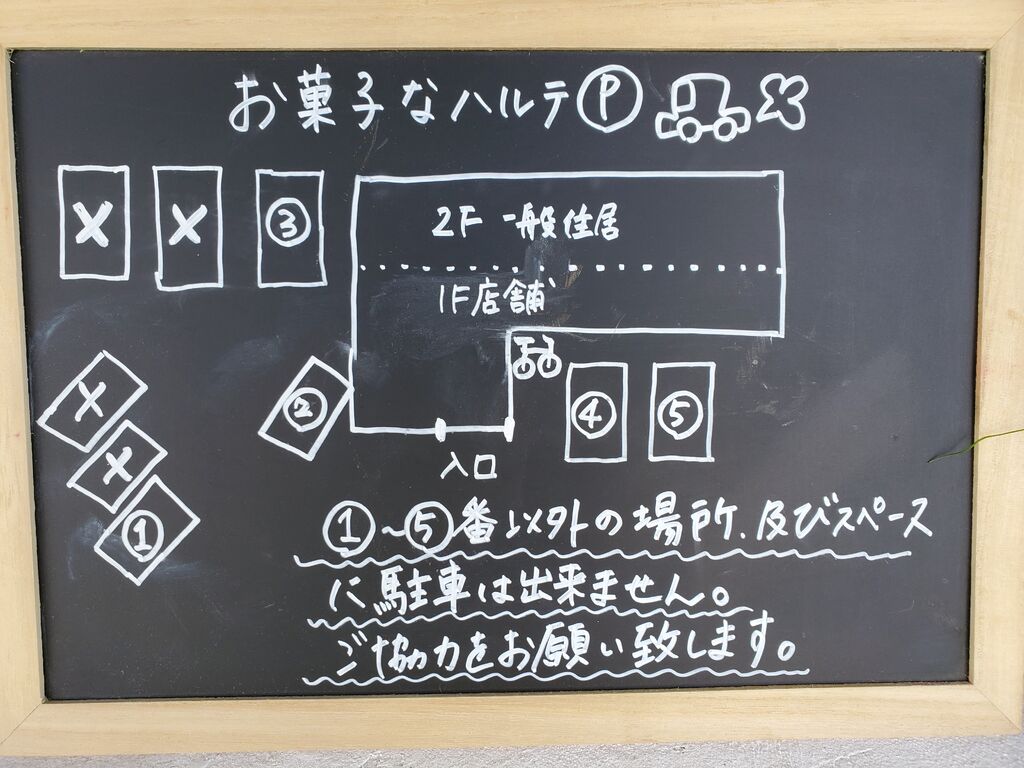 お菓子なハルテⓅ
X X ③
2F 一般住居
1F店舗
X
X
①
②
④ ⑤
入口
①~⑤番以外の場所、及びスペース
に駐車は出来ません。
ご協力をお願い致します。